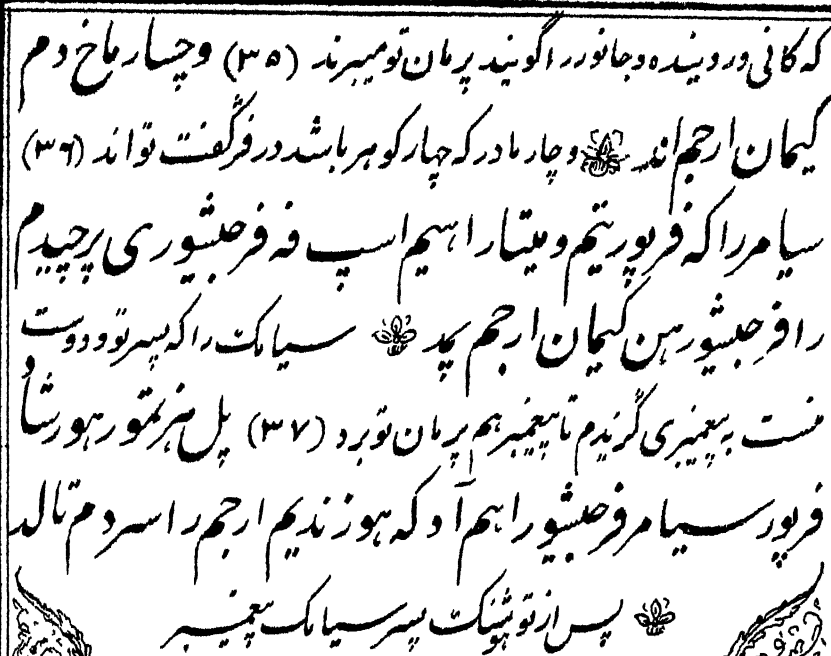 که کانی و روینده و جانور را گویند پرمان تو میبرند (۳۵) و چسار ماخ دم
گیمان ارجم اند و چار مادر که چهار گوهر باشد در فرگفت تو اند (۳۶)
سیامر را که فرپور تیم و میتار اهیم اسپ فه فرجیشوری پرچیدم
را فرجیشور هن گیمان ارجم پد سیامک را که پسر تو و دوست
منست به پیغمبری گزیدم تا پیغمبر هم پرمان تو برد (۳۷) پل هزتمور هورشاد
فرپور سیامر فرجیشور اهم آد که هوزندیم ارجم را سردم تالد
پس از تو هوشنگ پسر سیامک پیغمبر